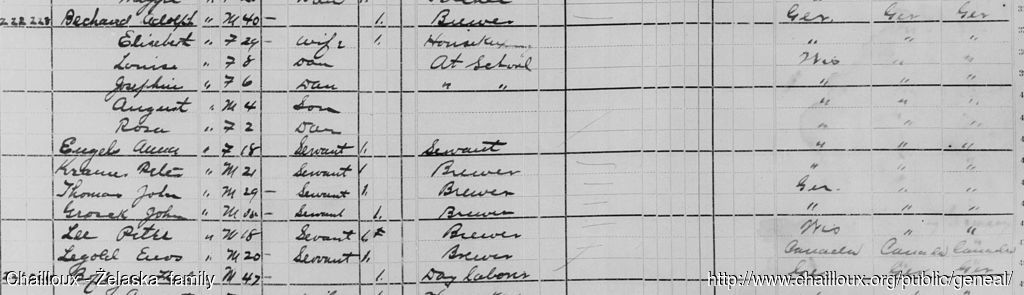 228 228 Bechaud Adolph " M 40 - 1. Brewer Ger Ger Ger
Elisebert " F 29 - Wife 1. Housekeep " " "
Louise " F 8 Dau At School Wis " "
Josephine " F 6 Dau " " " " "
August " M 4 Son " " "
Rosa " F 2 Dau " " "
Engels Anna " F 18 Servant 1. Servant " " "
Peter " M 21 Servant 1 Brewer " " "
Thomas John " M 29 - Servant 1. Brewer Ger. " "
John " M Servant 1. Brewer " " "
Lee Peter " M 18 Servant Brewer Wis " "
M 20 - Servant 1. Brewer Canada Canada Canada
M 47 - 1. Day Labour Ger Ger
Chailloux - Zelaska Family
http://www.chailloux.org/public/geneal/